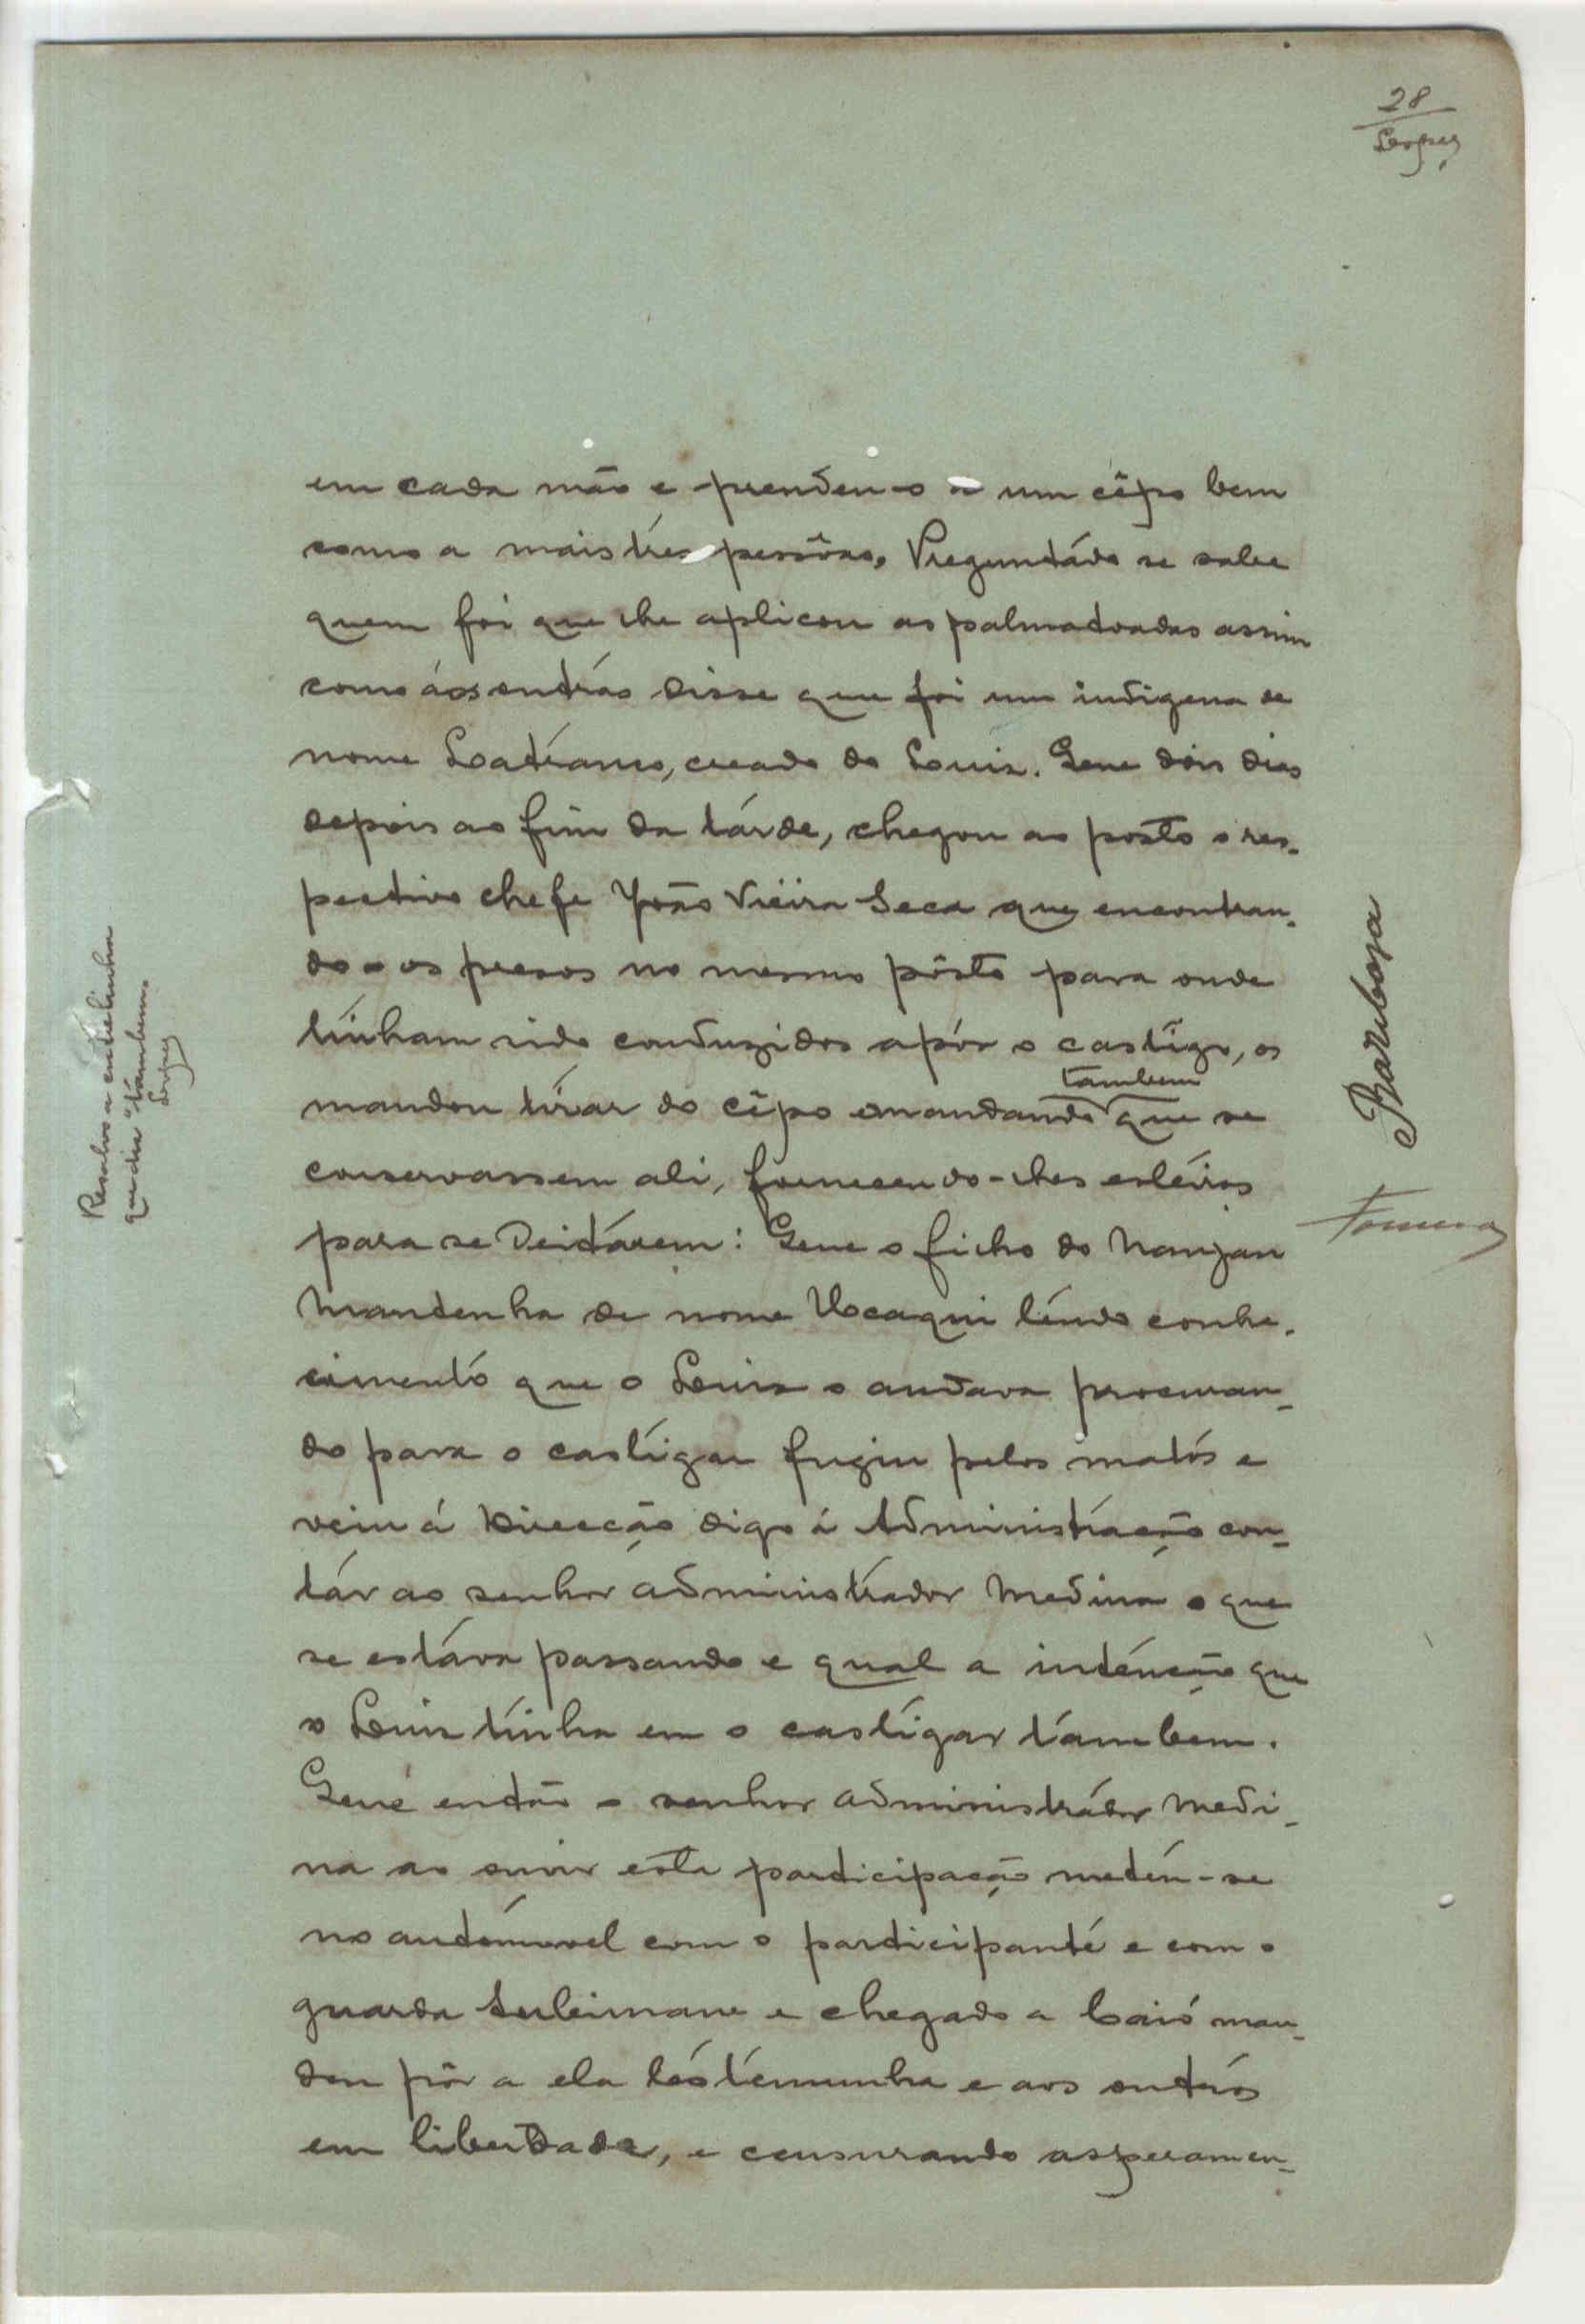 28
Lopes
em cada mão e prendeu-o a um cêpo bem
como a mais três pessôas. Preguntádo se sabe
quem foi que lhe aplicou as palmatoadas assim
como áos outrós disse que foi um indigena de
nome creado do Luiz. Que dois dias
depois ao fim da tárde, chegou ao posto o res-
pectivo chefe João Vieira Seca que encontran-
do os presos no mesmo pôsto para onde
tinham sido conduzidos após o castigo, os
tambem
mandou tirar do cêpo mandando que se
conservassem ali, fornecendo-lhes estéiras
para se deitárem: Que o ficho do Nanjan
Mandenha de nome Ucaqui téndo conhe-
cimentó que o Luiz o andava procuran-
do para o castigar fugiu pelos matós e
veiu á Direcção digo á Administração con-
tár ao senhor administrador Medina o que
se estáva passando e qual a inténção que
o Luiz tinha em o castigar támbem.
Que então o senhor administrádor Medi-
na ao ouvir esta participação metéu-se
no autómovel com o participanté e com o
guarda Suleimane e chegado a Caió man-
dou pôr a ela téstémunha e aos outrós
em liberdade, e censurando asperamen-
Barboza
Fonseca
Resalvo a entrelinha
que diz "tambem".
Lopes